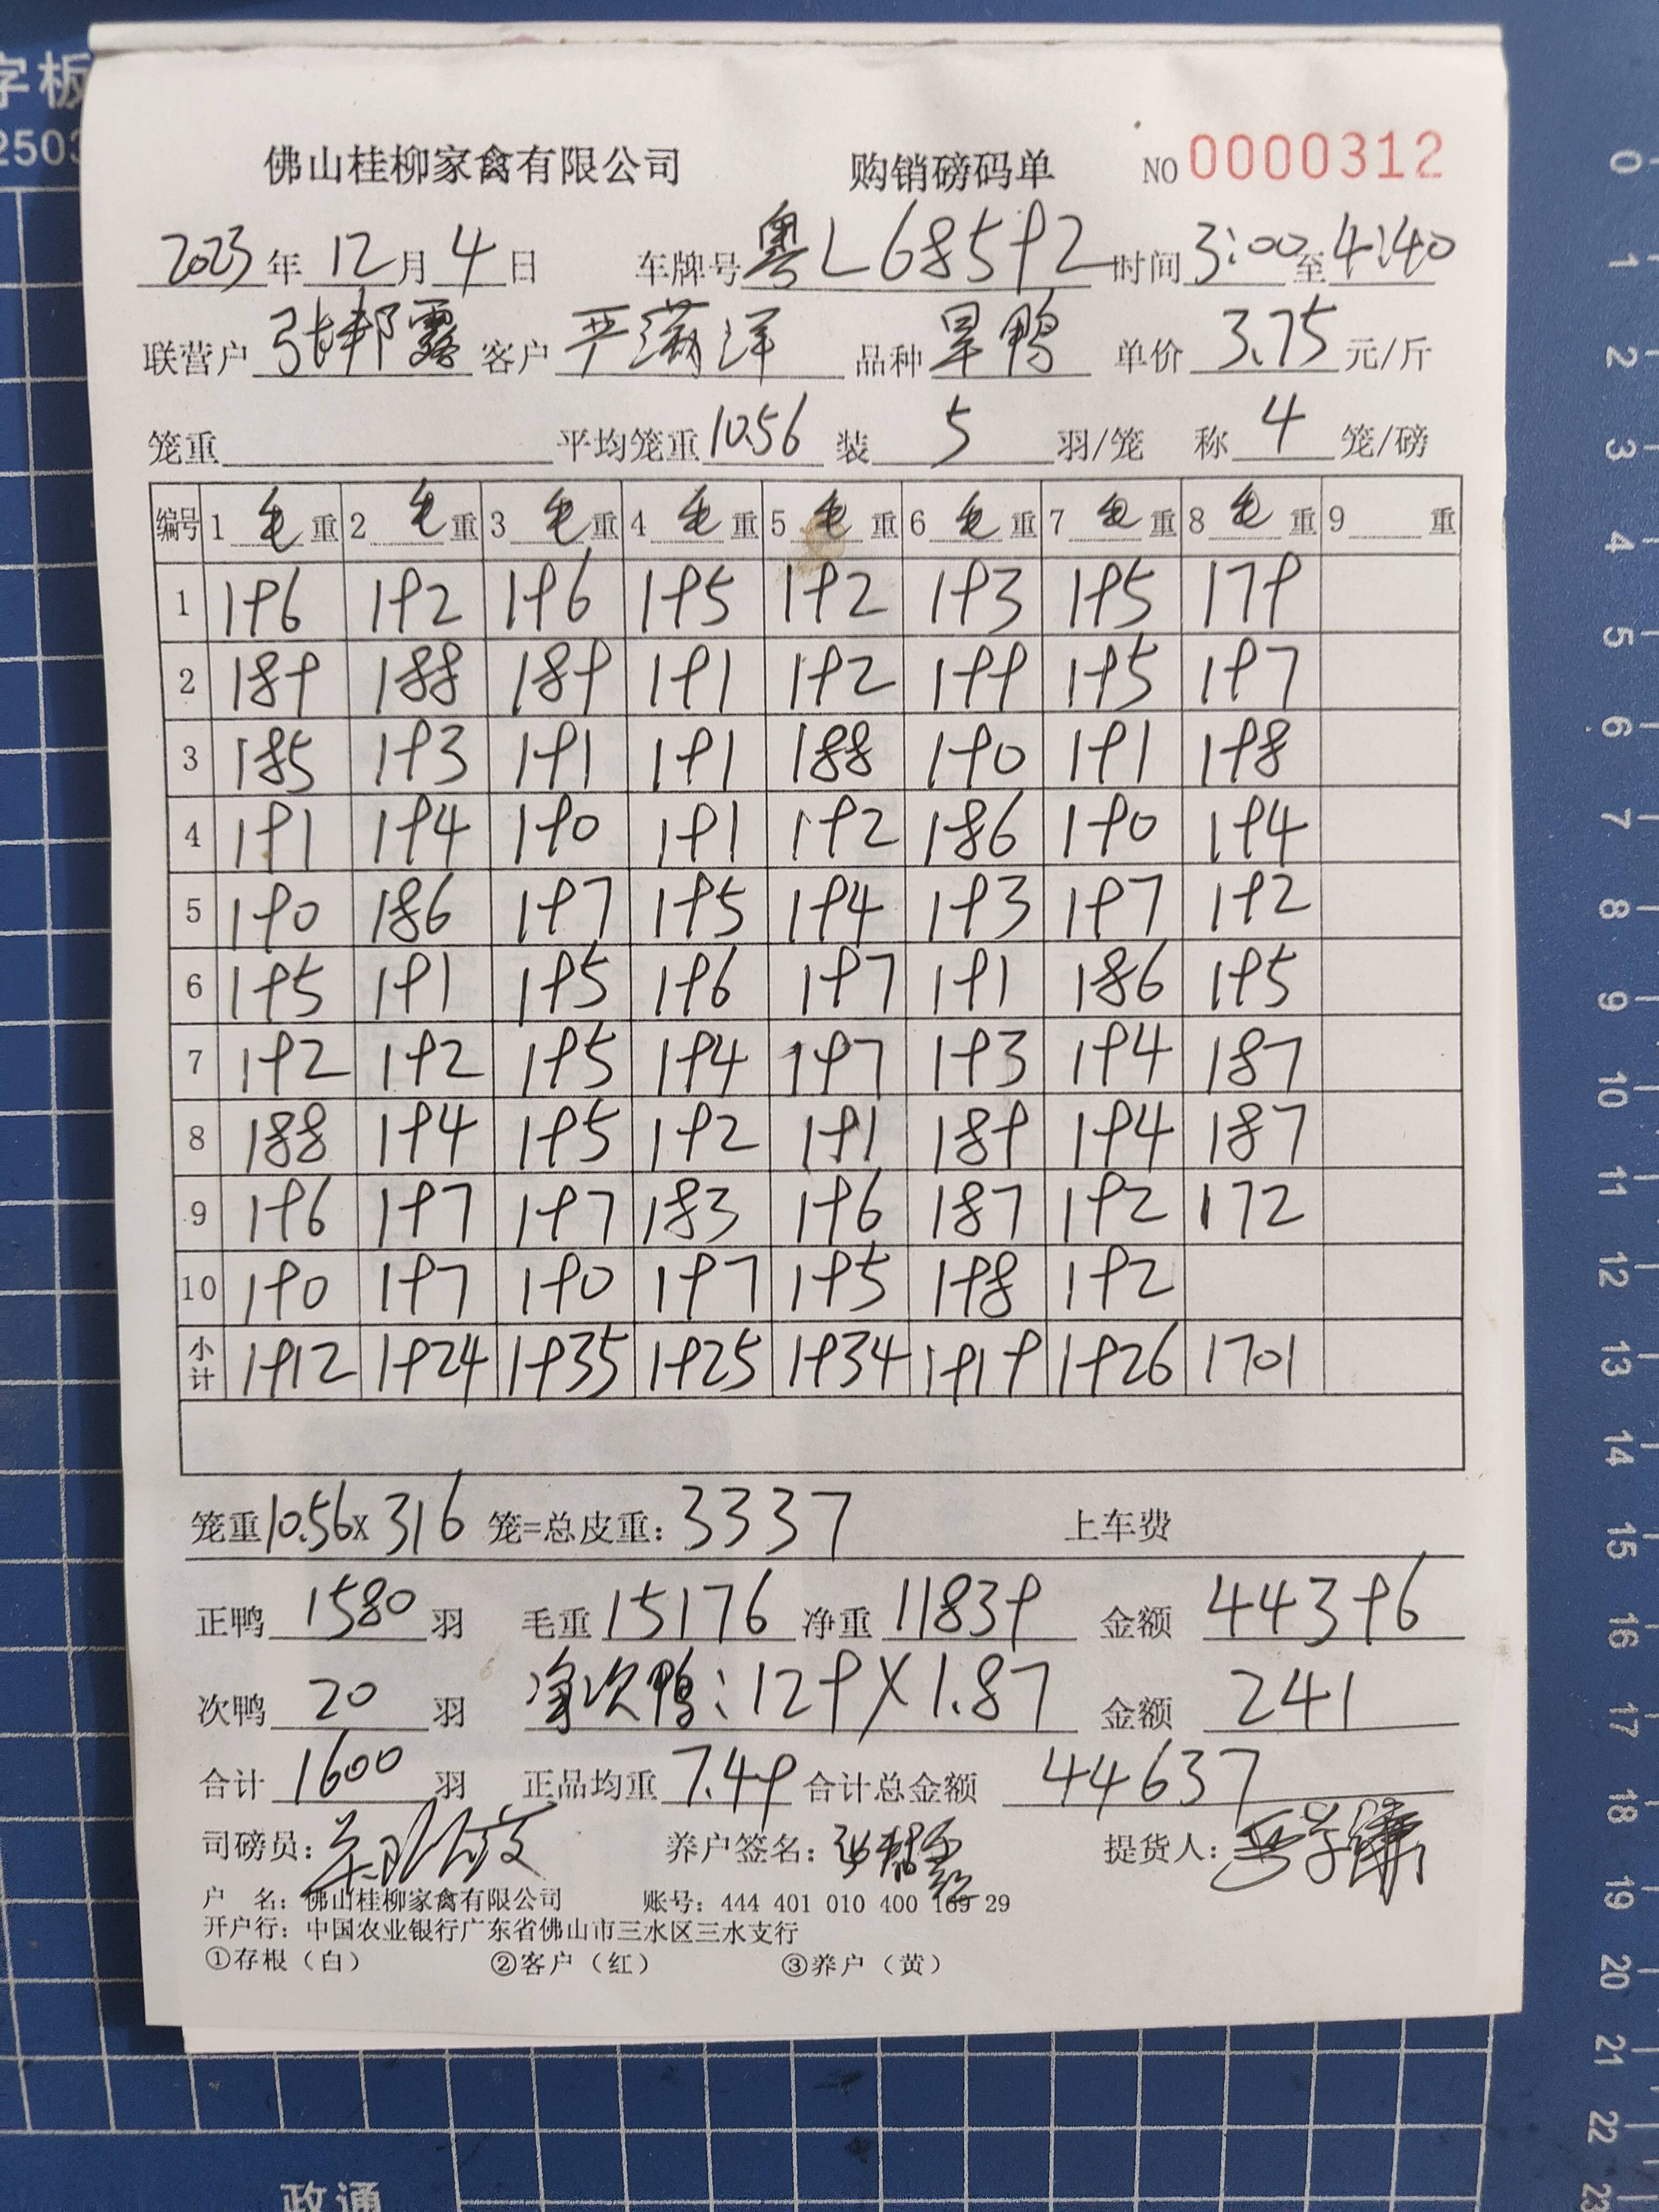 字板
佛山桂柳家禽有限公司 购销磅码单 NO 0000312
2023年12月4日 车牌号粤L68592 时间3:00至4:40
联营户 张邦露 客户 严满洋 品种 旱鸭 单价 3.75 元/斤
笼重 平均笼重10.56 装 5 羽/笼 称 4 笼/磅
编号 1 毛 重 2 毛 重 3 毛 重 4 毛 重 5 毛 重 6 毛 重 7 毛 重 8 毛 重 9 重
1 196 192 196 195 192 193 195 179
2 189 188 189 191 192 199 195 197
3 185 193 191 191 188 190 191 198
4 191 194 190 191 192 186 190 194
5 190 186 197 195 194 193 197 192
6 195 191 195 196 197 191 186 195
7 192 192 195 194 197 193 194 187
8 188 194 195 192 191 189 194 187
9 196 197 197 183 196 187 192 172
10 190 197 190 197 195 198 192
小计 1912 1924 1935 1925 1934 1919 1926 1701
笼重10.56x316 笼=总皮重:3337 上车费
正鸭 1580 羽 毛重 15176 净重 11839 金额 44396
次鸭 20 羽 净次鸭:129X1.87 金额 241
合计 1600 羽 正品均重 7.49 合计总金额 44637
司磅员: 养户签名: 提货人:
户 名: 佛山桂柳家禽有限公司 账号: 444 401 010 400 169 29
开户行: 中国农业银行广东省佛山市三水区三水支行
①存根(白) ②客户(红) ③养户(黄)
政通
0
1
2
3
4
5
6
7
8
9
10
11
12
13
14
15
16
17
18
19
20
21
22
23